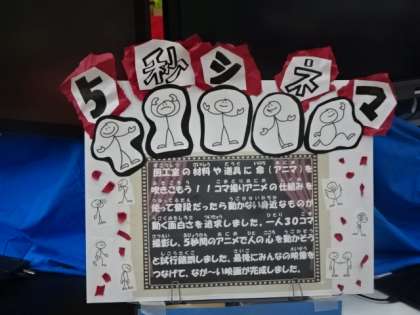 5秒シネマ
図工室の材料や道具に命(アニマ)を
吹きこもう!!コマ撮りアニメの仕組みを
使って普段だったら動かない身近なものが
動く面白さを追求しました。一人30コマ
撮影し、5秒間のアニメで人の心を動かそう
と試行錯誤しました。最後にみんなの映像を
つなげて、なが〜い映画が完成しました。